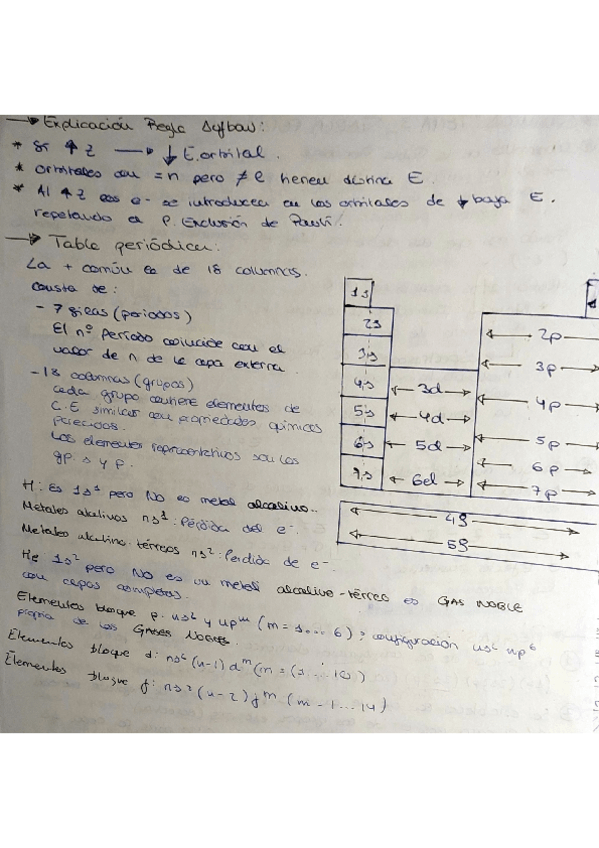 → Explicación Regla Aufbau:
* Si ↑ Z → ↓ E. orbital.
* orbitales con = n pero ≠ l tienen distina E.
* Al ↑ Z los e- se introducen en los orbitales de ↓ baja E.
respetando el P. Exclusión de Pauli.
→ Tabla periódica:
La + común es de 18 columnas.
Consta de:
- 7 filas (periodos)
El nº Período coincide con el
valor de n de la capa externa.
- 18 columnas (grupos)
cada grupo contiene elementos de
C.E similar con propiedades químicas
parecidas.
Los elementos representativos son los
gp. s y p.
1s
2s
3s
4s
5s
6s
7s
3d
4d
5d
6d
2p
3p
4p
5p
6p
7p
4f
5f
H: Es 1s¹ pero NO es metal alcalino..
Metales alcalinos ns¹: Pérdida del e-.
Metales alcalino-térreos ns²: Perdida de e-.
He 1s² pero NO es un metal alcalino-térreo es GAS NOBLE
con capas completas.
Elementos bloque p: ns² y npᵐ (m = 1... 6); configuración ns² np⁶
propia de los Gases Nobles.
Elementos bloque d: ns² (n-1) dᵐ (m = (1 ... 10)
Elementos bloque f: ns² (n-2) fᵐ (m - 1 ... 14)